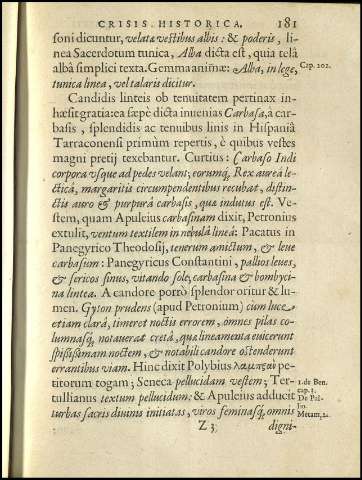 CRISIS HISTORICA. 181
soni dicuntur, velatæ vestibus albis: & poderis, li-
nea Sacerdotum tunica, Alba dicta est, quia telâ
albâ simplici texta. Gemma animæ: Alba, in lege, Cap. 202.
tunica linea, vel talaris dicitur.
Candidis linteis ob tenuitatem pertinax in-
hæsit gratia: ea sæpè dicta invenias Carbasa, à car-
basis, splendidis ac tenuibus linis in Hispaniâ
Tarraconensi primùm repertis, è quibus vestes
magni pretij texebantur. Curtius: Carbaso Indi
corpora vsque ad pedes velant; eorumq́, Rex aurea le-
cticâ, margaritis circumpendentibus recubat, distin-
ctis auro & purpurâ carbasis, qua indutus est. Ve-
stem, quam Apuleius carbasinam dixit, Petronius
extulit, ventum textilem in nebulâ lineâ: Pacatus in
Panegyrico Theodosij, tenerum amictum, & leue
carbasum: Panegyricus Constantini, pallios leues,
& sericos sinus, vitando sole, carbasina & bombyci-
na lintea. A candore porrò splendor oritur & lu-
men. Gyton prudens (apud Petronium) cùm luce
etiam clarâ, timeret noctis errorem, omnes pilas co-
lumnasq́, notauerat cretâ, qua lineamenta euicerunt
spississimam noctem, & notabili candore ostenderunt
errantibus viam. Hinc dixit Polybius λαμπρὰν pe-
titorum togam; Seneca pellucidam vestem; Ter- 1. de Ben.
cap. 1.
tullianus textum pellucidum: & Apuleius adducit De Pal-
lio.
turbas sacris diuinis initiatas, viros feminasq́, omnis Metam. 2.
Z 3 digni-